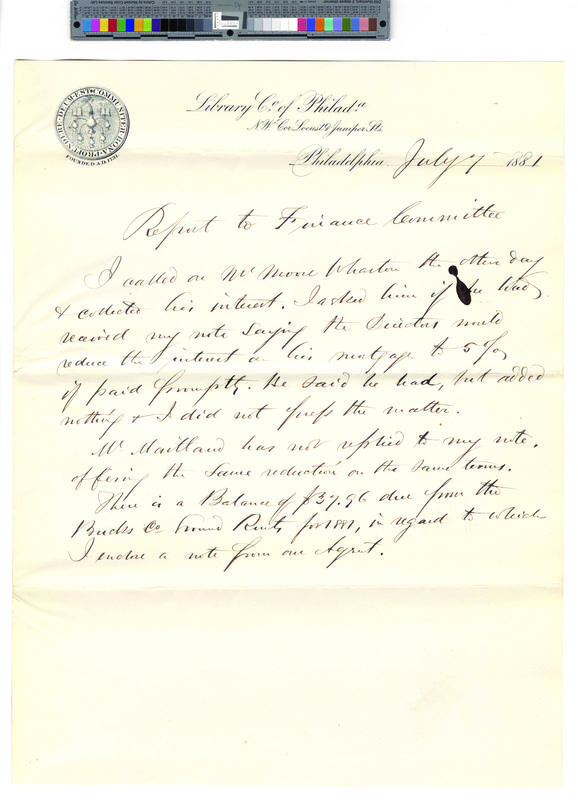 COMMUNITER BONA PROFUNDERE DEUM EST
FOUNDED A.D. 1731.
Library Co. of Philada.
N.W. Cor Locust & Juniper Sts.
Philadelphia July 7 1881
Report to Finance Committee
I called on Mr Moore Wharton the other day
& collected his interest. I asked him if he had
received my note saying the Directors would
reduce the interest on his mortgage to 5 %
if paid promptly. He said he had, but added
nothing & I did not press the matter.
Mr Maitland has not replied to my note,
offering the same reduction on the same terms.
There is a Balance of $37.96 due from the
Bucks Co Ground Rents for 1881, in regard to which
I enclose a note from our Agent.